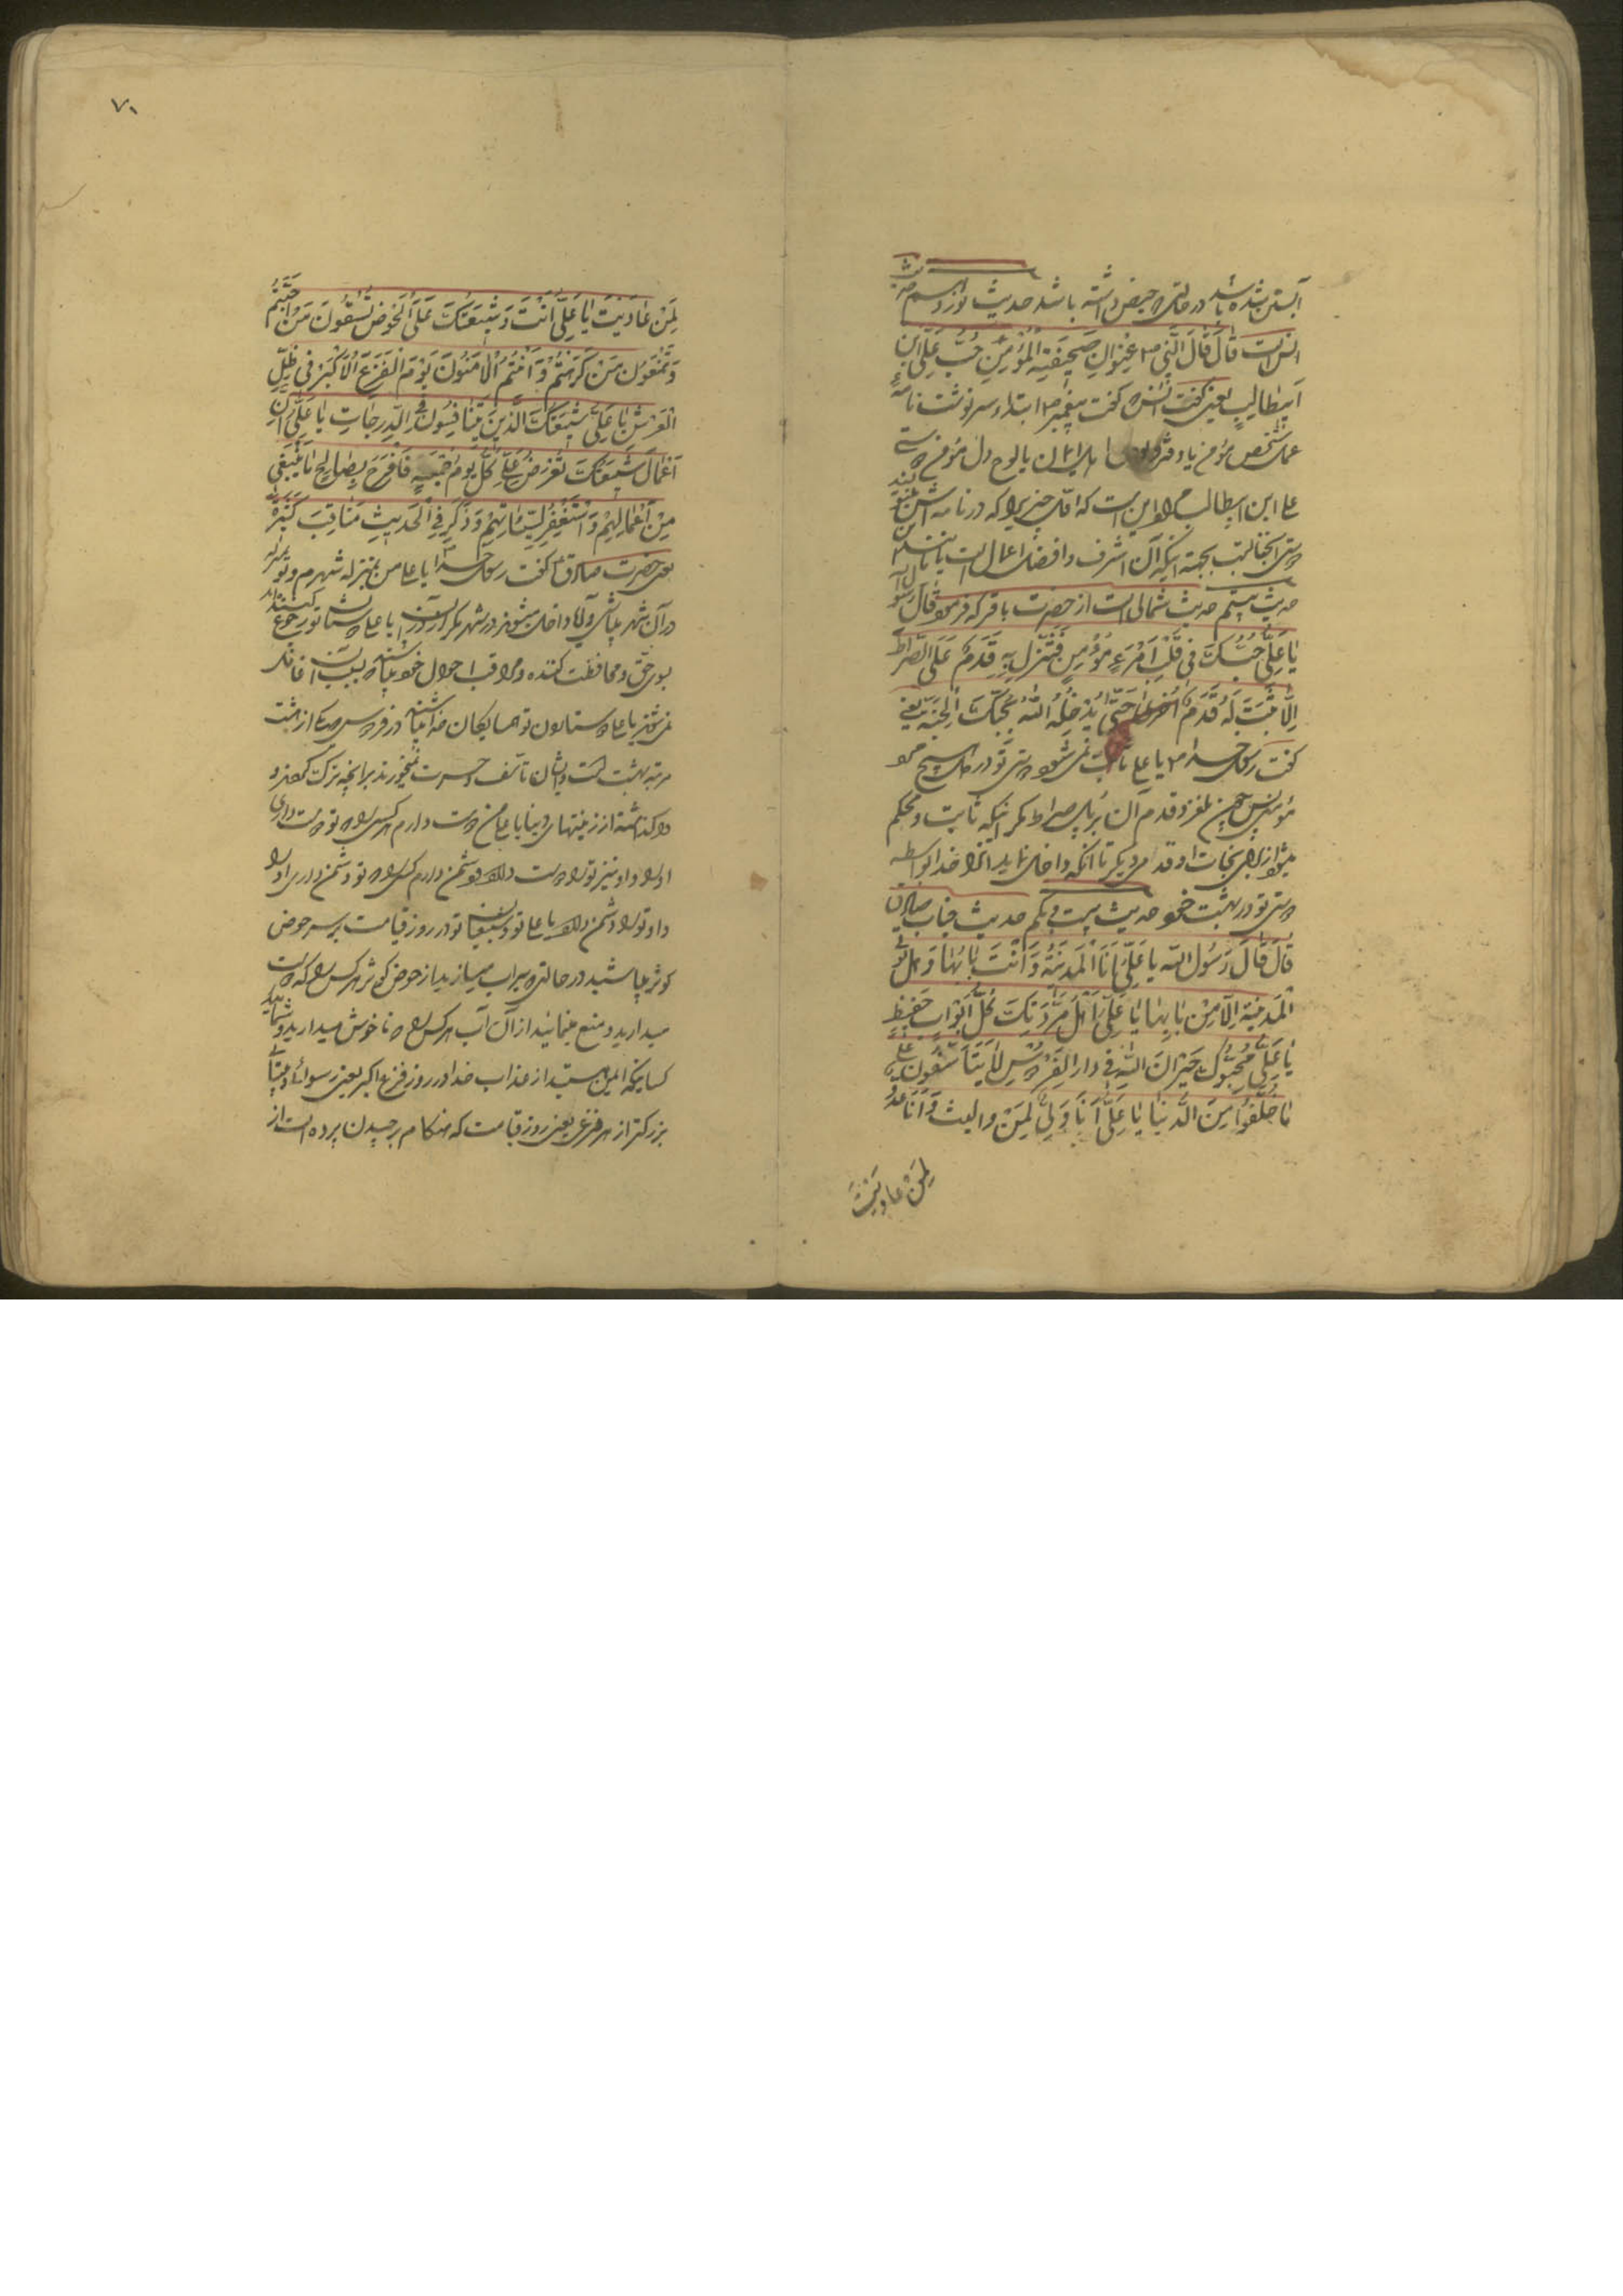 آبستن شده باشد در حالتی که حیض داشته باشد حدیث نوزدهم حدیث
انس است قال قال النبی ص عُنوانِ صَحیفَةِ المُؤمِنِ حُبُّ عَلِیِّ ابنِ
اَبیطالِبٍ یعنی گفت انس که گفت پیغمبر ص ابتدا و سرنوشت نامهٔ
عمل شخص مؤمن یا دفتر ایمان یا لوح دل مؤمن دوستی
علی ابن ابیطالب مراد این است که اول چیزیرا که در نامه اش
دوستی آنجنابست بجهة اینکه آن اشرف و افضل اعمال است
حدیث بیستم حدیث شمالی است از حضرت باقر که فرمود قال رسول
یا عَلِیُّ ما ثَبَتَ حُبُّکَ فی قَلبِ امرَءٍ مُؤمِنٍ فَتَزِلُّ بِهِ قَدَمٌ عَلَی الصِّراطِ
اِلّا ثَبَتَ لَهُ قَدَمٌ اُخری حَتّی یُدخِلَهُ اللهُ بِحُبِّکَ الجَنَّةَ یعنی
گفت رسول خدا ص یا علی ثابت نمی شود دوستی تو در دل هیچ مرد
مؤمنی پس بلغزد قدم آن بر پل صراط مگر اینکه ثابت و محکم
میشود از برای نجات او قدم دیگر تا آنکه داخل نماید آنرا خدا بواسطه
دوستی تو در بهشت خود حدیث بیست و یکم حدیث جناب صادق
قالَ قالَ رَسُولُ اللهِ یا عَلِیُّ اَنَا المَدینَةُ وَ اَنتَ بابُها وَ هَل تُؤتی
المَدینَةُ اِلّا مِن بابِها یا عَلِیُّ اَهلُ مَوَدَّتِکَ کُلُّ اَوّابٍ حَفیظٍ
یا عَلِیُّ مُحِبُّوکَ جیرانُ اللهِ فی دارِ الفِردَوسِ لا یَتَأَسَّفُونَ عَلی
ما خَلَّفُوا مِنَ الدُّنیا یا عَلِیُّ اَنَا وَلِیٌّ لِمَن والَیتَ وَ اَنَا عَدُوٌّ
لِمَن عادَیتَ
۷۰
لِمَن عادَیتَ یا عَلِیُّ اَنتَ وَ شیعَتُکَ عَلَی الحَوضِ تَسقُونَ مَن اَحبَبتُم
وَ تَمنَعُونَ مَن کَرِهتُم وَ اَنتُمُ الآمِنُونَ یَومَ الفَزَعِ الاَکبَرِ فی ظِلِّ
العَرشِ یا عَلِیُّ شیعَتُکَ الَّذینَ یَتَنافَسُونَ فِی الدَّرَجاتِ یا عَلِیُّ اِنَّ
اَعمالَ شیعَتِکَ تُعرَضُ عَلَیَّ کُلَّ یَومِ جُمعَةٍ فَاَفرَحُ بِصالِحِ ما یَبلُغُنی
مِن اَعمالِهِم وَ اَستَغفِرُ لِسَیِّئاتِهِم وَ ذُکِرَ فِی الحَدیثِ مَناقِبَ کَثیرَةً
یعنی حضرت صادق ع گفت رسول خدا ص یا علی من بمنزله شهرم و تو بمنزله
در آن شهر یا علی دوستان تو رجوع کنندگانند
بسوی حق و محافظت کننده و مراقب احوال خود میباشند
یا علی دوستداران تو همسایگان خدا میباشند در فردوس اعلی از هشت
مرتبه بهشت است و ایشان تأسف و حسرت نمیخورند بر آنچه ترک نمودند و
واگذاشته از زینتهای دنیا یا علی من دوست دارم هر کس را که تو دوست داری
او را و او نیز تو را دوست دارد و دشمن دارم کسی را که تو دشمن داری او را
و او تو را دشمن دارد یا علی تو و شیعیان تو در روز قیامت بر سر حوض
کوثر میباشید در حالتی که سیراب میسازید از حوض کوثر هر کس را که دوست
میدارید و منع مینمائید از آن آب هر کس را که ناخوش میدارید و شمائید
کسانیکه ایمن هستید از عذاب خدا در روز فزع اکبر یعنی رسوائی
بزرگتر از هر فزعی یعنی روز قیامت که هنگام برچیدن پرده است از